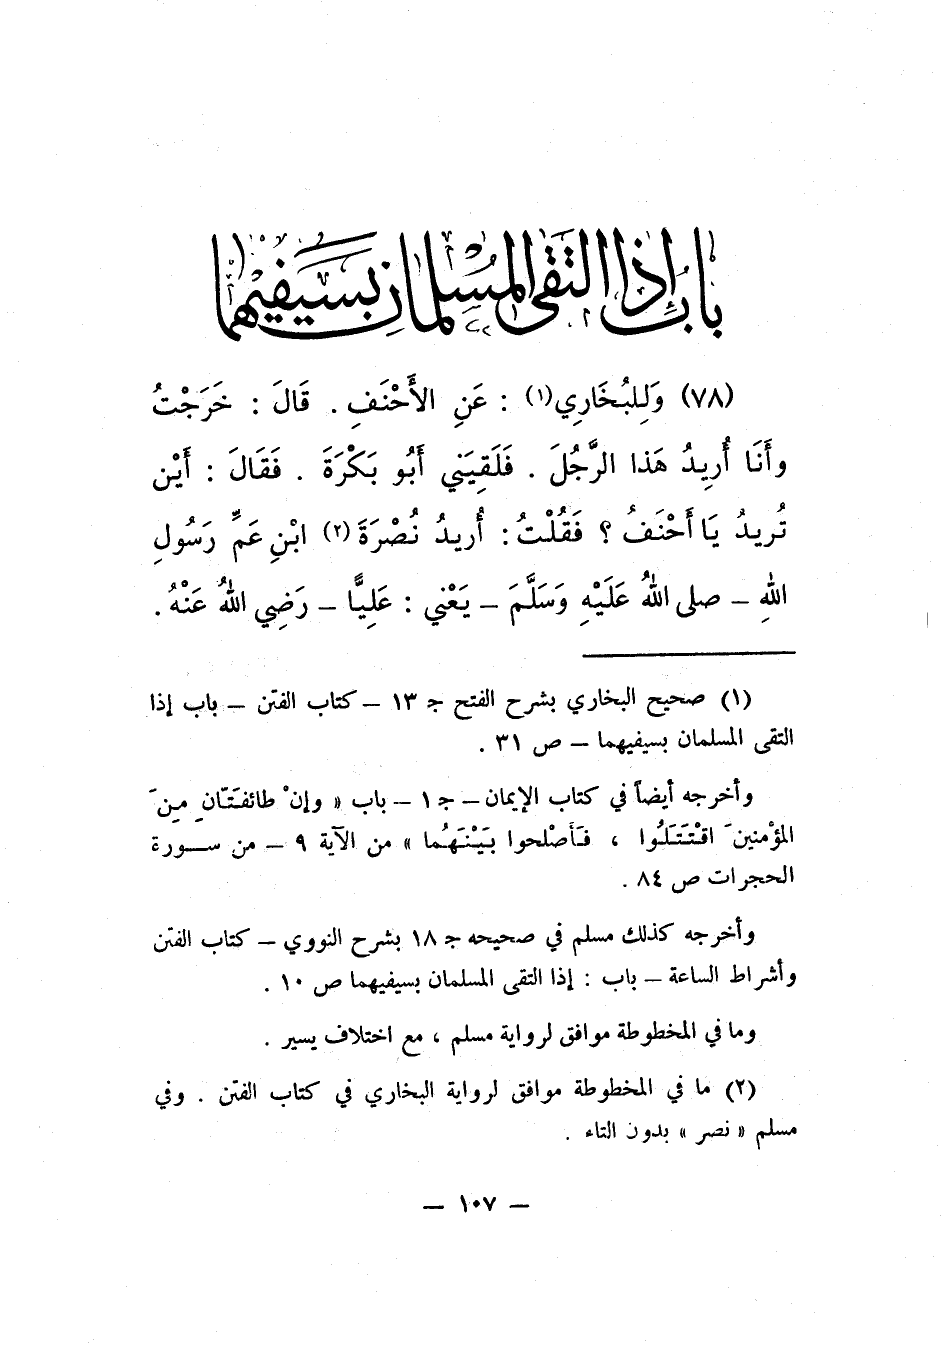 باب إذا التقى المسلمان بسيفيهما
(٧٨) وَلِلبُخَارِي(١) : عَنِ الأَحْنَفِ . قَالَ : خَرَجْتُ
وأَنَا أُرِيدُ هَذا الرَّجُلَ . فَلَقِيَني أَبُو بَكْرَةَ . فَقَالَ : أَيْن
تُريدُ يَا أَحْنَفُ ؟ فَقُلْتُ : أُريدُ نُصْرَةَ (٢) ابْنِ عَمِّ رَسُولِ
اللهِ – صلى اللهُ عَلَيْهِ وَسَلَّمَ – يَعْني : عَلِيًّا – رَضِي اللهُ عَنْهُ .
(١) صحيح البخاري بشرح الفتح جـ ١٣ – كتاب الفتن – باب إذا
التقى المسلمان بسيفيهما – ص ٣١ .
وأخرجه أيضاً في كتاب الإيمان – جـ ١ – باب « وإنْ طائفـَتـَانِ مـِنَ
المؤْمنينَ اقْتـَتـَلـُوا ، فـَأصْلحوا بـَيْنـَهـُما » من الآية ٩ – من ســورة
الحجرات ص ٨٤ .
وأخرجه كذلك مسلم في صحيحه جـ ١٨ بشرح النووي – كتاب الفتن
وأشراط الساعة – باب : إذا التقى المسلمان بسيفيهما ص ١٠ .
وما في المخطوطة موافق لرواية مسلم ، مع اختلاف يسير .
(٢) ما في المخطوطة موافق لرواية البخاري في كتاب الفتن . وفي
مسلم « نصر » بدون التاء .
– ١٠٧ –